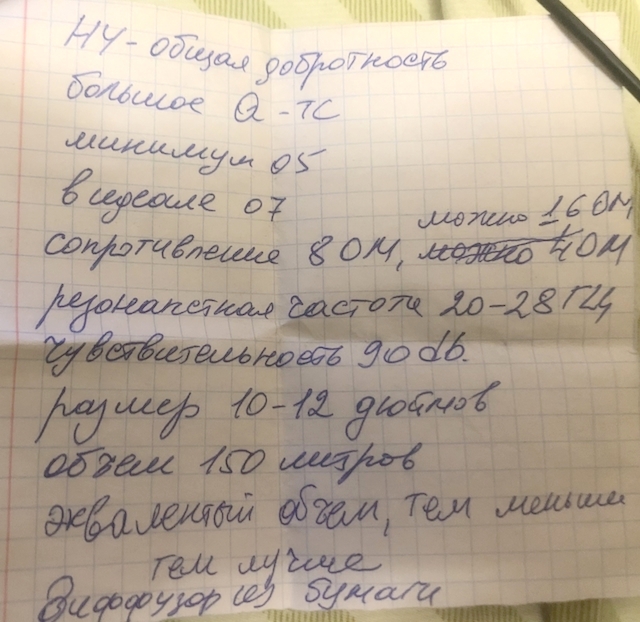 НЧ - общая добротность
большое Q - ТС
минимум 05
в идеале 07
можно 16 ОМ
сопротивление 8 ОМ, можно 4 ОМ
резонанстная частота 20-28 ГЦ
чувствительность 90 db.
размер 10-12 дюймов
объем 150 литров
эквалентый объем, тем меньше
тем лучше
Диффузор из бумаги